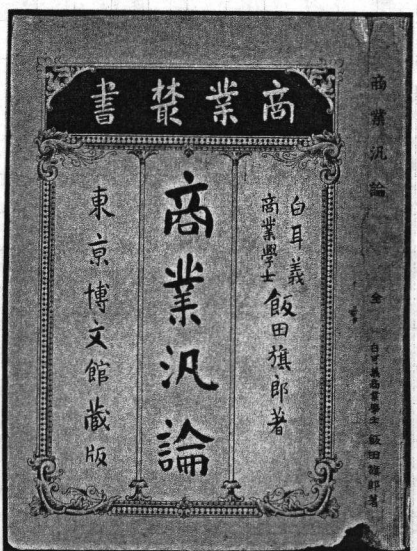 商業叢書
白耳義
商業學士 飯田旗郎著
商業汎論
東京博文館藏版
商業汎論 全 白耳義商業學士 飯田旗郎著